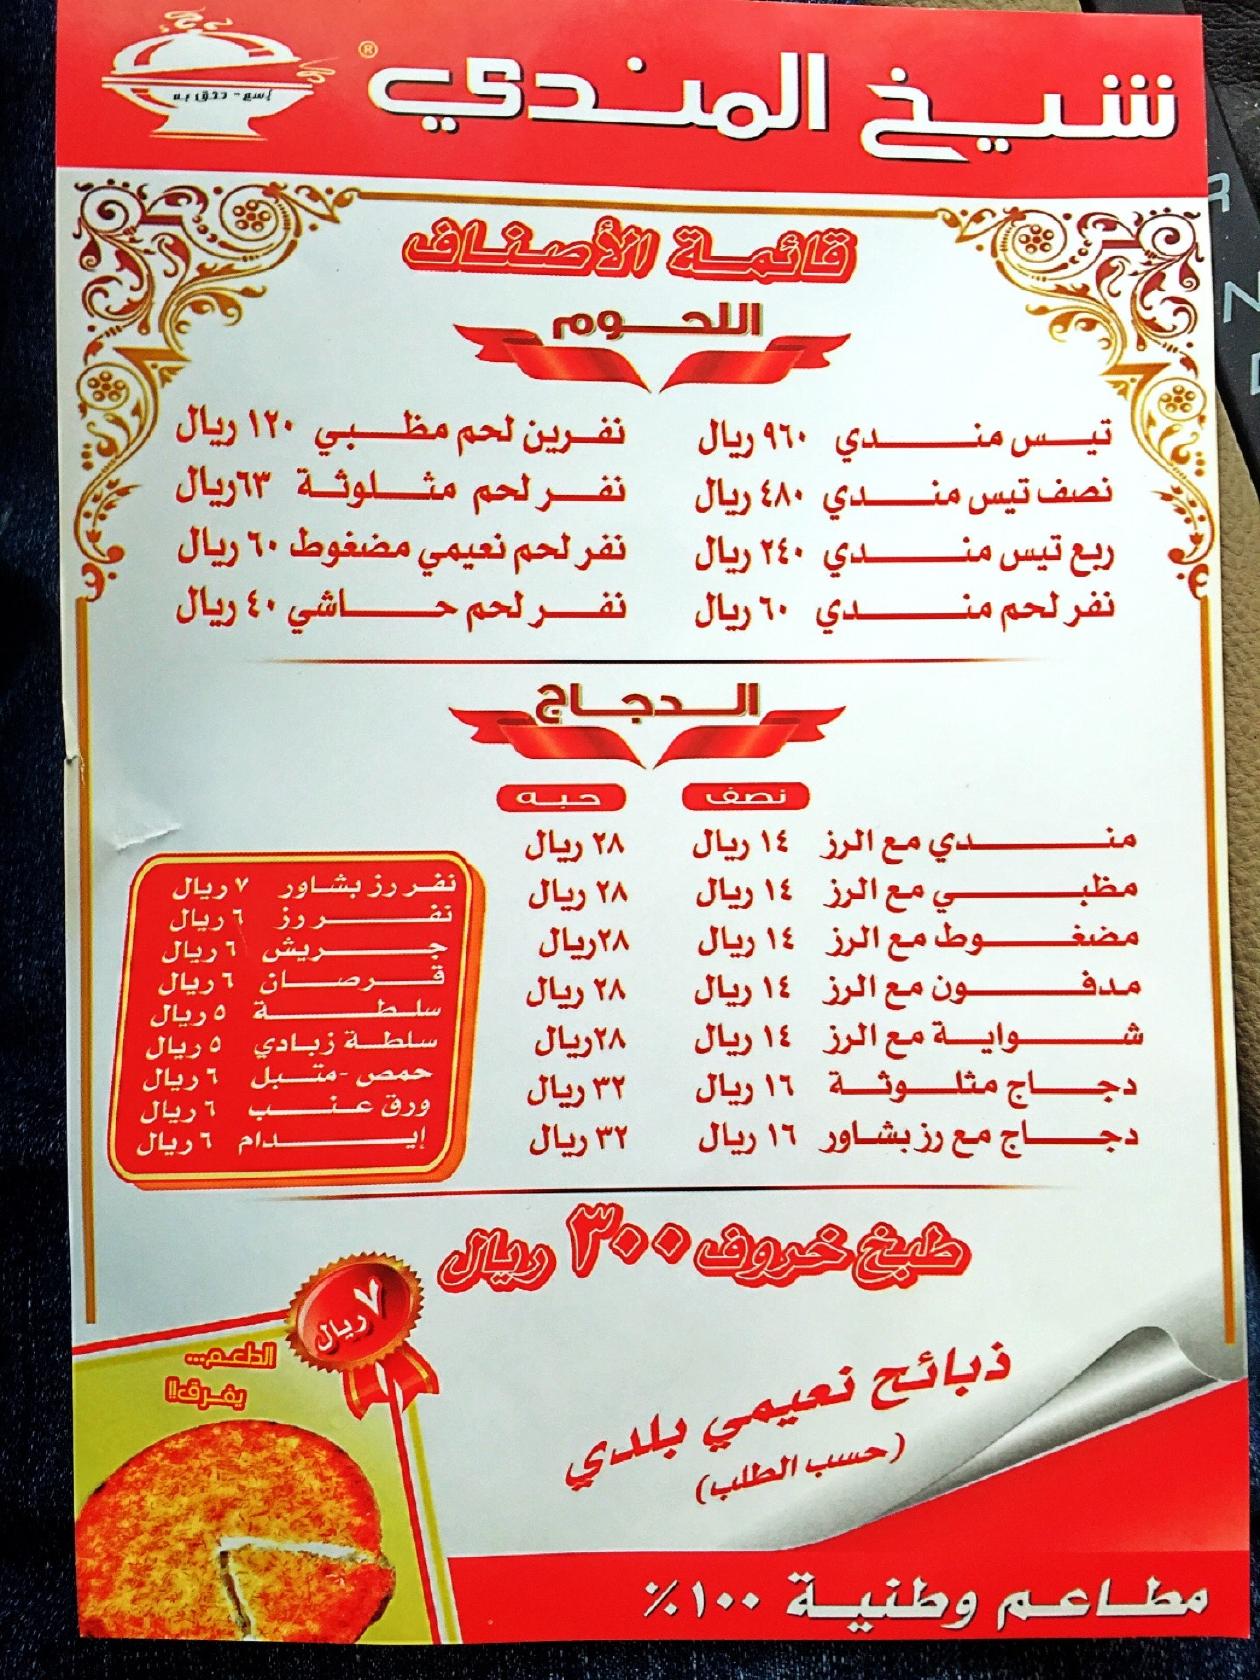 شيخ المندي ®
إسم - تثق به
قائمة الأصناف
اللحوم
تيس مندي ٩٦٠ ريال
نصف تيس مندي ٤٨٠ ريال
ربع تيس مندي ٢٤٠ ريال
نفر لحم مندي ٦٠ ريال
نفرين لحم مظبي ١٢٠ ريال
نفر لحم مثلوثة ٦٣ ريال
نفر لحم نعيمي مضغوط ٦٠ ريال
نفر لحم حاشي ٤٠ ريال
الدجاج
نصف حبه
مندي مع الرز ١٤ ريال ٢٨ ريال
مظبي مع الرز ١٤ ريال ٢٨ ريال
مضغوط مع الرز ١٤ ريال ٢٨ ريال
مدفون مع الرز ١٤ ريال ٢٨ ريال
شواية مع الرز ١٤ ريال ٢٨ ريال
دجاج مثلوثة ١٦ ريال ٣٢ ريال
دجاج مع رز بشاور ١٦ ريال ٣٢ ريال
نفر رز بشاور ٧ ريال
نفر رز ٦ ريال
جريش ٦ ريال
قرصان ٦ ريال
سلطة ٥ ريال
سلطة زبادي ٥ ريال
حمص - متبل ٦ ريال
ورق عنب ٦ ريال
إيدام ٦ ريال
طبخ خروف ٣٠٠ ريال
٧ ريال
الطعم...
يفرق!!
ذبائح نعيمي بلدي
(حسب الطلب)
مطاعم وطنية ١٠٠٪